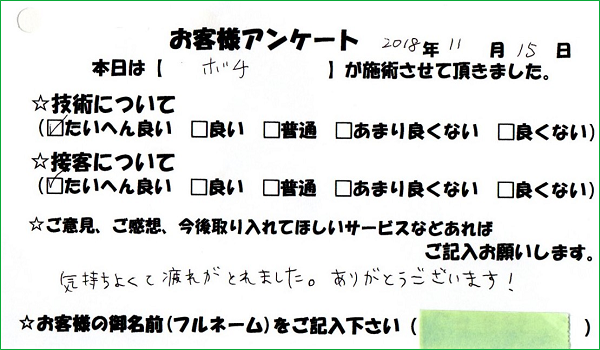 お客様アンケート 2018年11月15日
本日は【 ボチ 】が施術させて頂きました。
☆技術について
(☑たいへん良い □良い □普通 □あまり良くない □良くない)
☆接客について
(☑たいへん良い □良い □普通 □あまり良くない □良くない)
☆ご意見、ご感想、今後取り入れてほしいサービスなどあれば
ご記入お願いします。
気持ちよくて疲れがとれました。ありがとうございます!
☆お客様の御名前(フルネーム)をご記入下さい( )